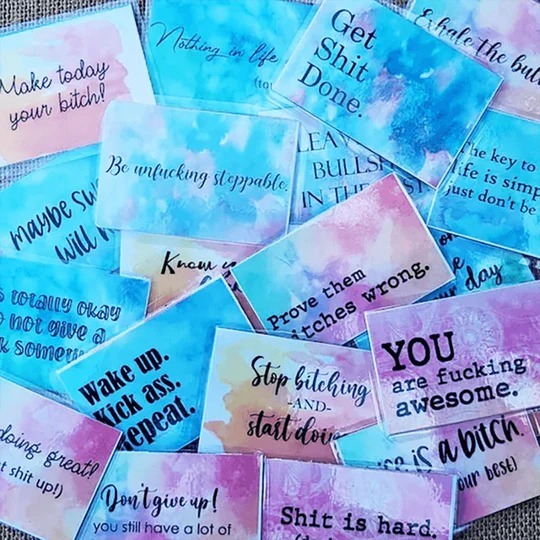 Make today
your bitch!
Nothing in life
Get
Shit
Done.
Exhale the
Be unfucking stoppable.
BULLSH
IN THE
The key to
life is simp
just don't be
maybe sw
will
Know
Prove them
itches wrong.
day
s totally okay
o not give a
k somet
Wake up.
Kick ass.
Repeat.
Stop bitching
-AND-
start doin
YOU
are fucking
awesome.
doing great!
t shit up!)
ce is a bitch.
our best)
Don't give up!
you still have a lot of
Shit is hard.